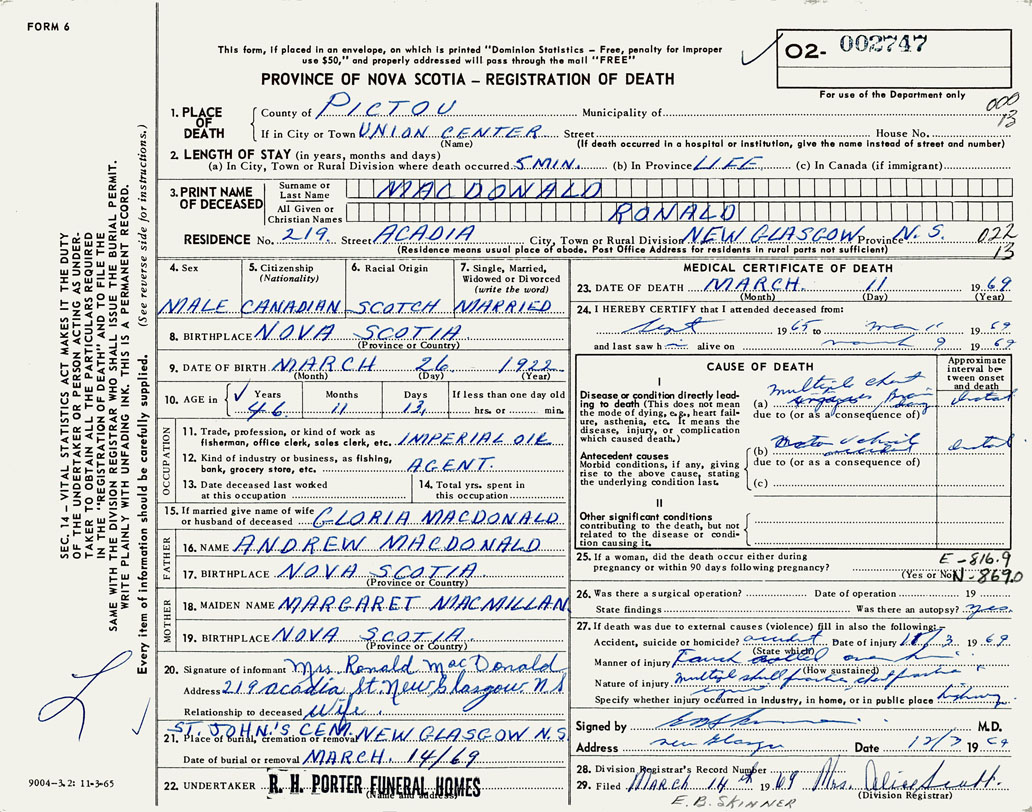 FORM 6
This form, if placed in an envelope, on which is printed "Dominion Statistics – Free, penalty for improper
use $50," and properly addressed will pass through the mail "FREE"
PROVINCE OF NOVA SCOTIA – REGISTRATION OF DEATH
02- 002747
For use of the Department only
000
13
1. PLACE OF DEATH
County of PICTOU Municipality of
If in City or Town UNION CENTER Street House No.
(Name) (If death occurred in a hospital or institution, give the name instead of street and number)
2. LENGTH OF STAY (in years, months and days)
(a) In City, Town or Rural Division where death occurred 5 MIN. (b) In Province LIFE (c) In Canada (if immigrant)
3. PRINT NAME OF DECEASED
Surname or Last Name MACDONALD
All Given or Christian Names RONALD
RESIDENCE No. 219 Street ACADIA City, Town or Rural Division NEW GLASGOW Province N.S. 022
(Residence means usual place of abode. Post Office Address for residents in rural parts not sufficient) 13
SEC. 14 – VITAL STATISTICS ACT MAKES IT THE DUTY
OF THE UNDERTAKER OR PERSON ACTING AS UNDER-
TAKER TO OBTAIN ALL THE PARTICULARS REQUIRED
IN THE "REGISTRATION OF DEATH" AND TO FILE THE
SAME WITH THE DIVISION REGISTRAR WHO SHALL ISSUE THE BURIAL PERMIT.
WRITE PLAINLY WITH UNFADING INK. THIS IS A PERMANENT RECORD.
Every item of information should be carefully supplied. (See reverse side for instructions.)
4. Sex MALE
5. Citizenship (Nationality) CANADIAN
6. Racial Origin SCOTCH
7. Single, Married, Widowed or Divorced (write the word) MARRIED
8. BIRTHPLACE NOVA SCOTIA
(Province or Country)
9. DATE OF BIRTH MARCH 26 1922
(Month) (Day) (Year)
10. AGE in Years 46 Months 11 Days 13 If less than one day old hrs. or min.
OCCUPATION
11. Trade, profession, or kind of work as
fisherman, office clerk, sales clerk, etc. IMPERIAL OIL
12. Kind of industry or business, as fishing,
bank, grocery store, etc. AGENT.
13. Date deceased last worked
at this occupation
14. Total yrs. spent in
this occupation
15. If married give name of wife
or husband of deceased GLORIA MACDONALD
FATHER
16. NAME ANDREW MACDONALD
17. BIRTHPLACE NOVA SCOTIA
(Province or Country)
MOTHER
18. MAIDEN NAME MARGARET MACMILLAN
19. BIRTHPLACE NOVA SCOTIA
(Province or Country)
20. Signature of informant Mrs. Ronald MacDonald
Address 219 Acadia St. New Glasgow N S
Relationship to deceased Wife.
ST. JOHN'S CEM.
21. Place of burial, cremation or removal NEW GLASGOW N.S.
Date of burial or removal MARCH 14/69
22. UNDERTAKER R. H. PORTER FUNERAL HOMES
(Name and address)
9004-3.2: 11-3-65
MEDICAL CERTIFICATE OF DEATH
23. DATE OF DEATH MARCH 11 1969
(Month) (Day) (Year)
24. I HEREBY CERTIFY that I attended deceased from:
Sept 1965 to Mar 11 1969
and last saw h alive on March 9 1969
CAUSE OF DEATH
Approximate interval between onset and death
I
Disease or condition directly leading to death (This does not mean
the mode of dying, e.g., heart failure, asthenia, etc. It means the
disease, injury, or complication which caused death.)
(a) multiple chest
due to (or as a consequence of)
Antecedent causes
Morbid conditions, if any, giving
rise to the above cause, stating
the underlying condition last.
(b) Motor vehicle accident
due to (or as a consequence of)
(c)
II
Other significant conditions
contributing to the death, but not
related to the disease or condition causing it.
25. If a woman, did the death occur either during
pregnancy or within 90 days following pregnancy?
(Yes or No)
E-816.9
N-869.0
26. Was there a surgical operation? Date of operation 19
State findings Was there an autopsy? yes.
27. If death was due to external causes (violence) fill in also the following:
Accident, suicide or homicide? accident Date of injury 11/3 1969
(State which)
Manner of injury
(How sustained)
Nature of injury multiple skull fractures chest
Specify whether injury occurred in industry, in home, or in public place highway
Signed by M.D.
Address New Glasgow Date 12/3 1969
28. Division Registrar's Record Number
29. Filed MARCH 14th 1969 Mrs.
(Division Registrar)
E. B. SKINNER